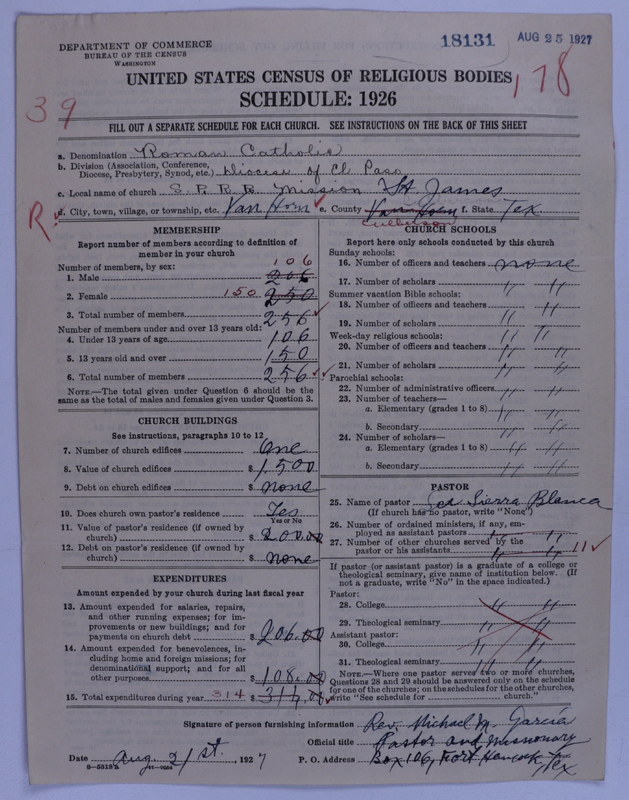 DEPARTMENT OF COMMERCE
BUREAU OF THE CENSUS
WASHINGTON
18131
AUG 25 1927
UNITED STATES CENSUS OF RELIGIOUS BODIES
178
SCHEDULE: 1926
39
FILL OUT A SEPARATE SCHEDULE FOR EACH CHURCH. SEE INSTRUCTIONS ON THE BACK OF THIS SHEET
a. Denomination Roman Catholic
b. Division (Association, Conference, Diocese, Presbytery, Synod, etc.) Diocese of El Paso
c. Local name of church S.P.R.R. Mission St. James
R. d. City, town, village, or township, etc. Van Horn e. County Van Horn f. State Tex
Culberson
MEMBERSHIP
Report number of members according to definition of
member in your church
Number of members, by sex: 106
1. Male 206
2. Female 150 250
3. Total number of members 256
Number of members under and over 13 years old:
4. Under 13 years of age 106
5. 13 years old and over 150
6. Total number of members 256
NOTE.—The total given under Question 6 should be the
same as the total of males and females given under Question 3.
CHURCH BUILDINGS
See instructions, paragraphs 10 to 12
7. Number of church edifices One
8. Value of church edifices $ 1,500
9. Debt on church edifices $ none
10. Does church own pastor's residence Yes
Yes or No
11. Value of pastor's residence (if owned by
church) $ 200.00
12. Debt on pastor's residence (if owned by
church) $ none
EXPENDITURES
Amount expended by your church during last fiscal year
13. Amount expended for salaries, repairs,
and other running expenses; for im-
provements or new buildings; and for
payments on church debt $ 206.00
14. Amount expended for benevolences, in-
cluding home and foreign missions; for
denominational support; and for all
other purposes $ 108.00
15. Total expenditures during year 314 $ 314.00
CHURCH SCHOOLS
Report here only schools conducted by this church
Sunday schools:
16. Number of officers and teachers none
17. Number of scholars " "
Summer vacation Bible schools:
18. Number of officers and teachers " "
19. Number of scholars " "
Week-day religious schools: " "
20. Number of officers and teachers " "
21. Number of scholars " "
Parochial schools:
22. Number of administrative officers " "
23. Number of teachers—
a. Elementary (grades 1 to 8) " "
b. Secondary " "
24. Number of scholars—
a. Elementary (grades 1 to 8) " "
b. Secondary " "
PASTOR
25. Name of pastor Sierra Blanca
(If church has no pastor, write "None")
26. Number of ordained ministers, if any, em-
ployed as assistant pastors " "
27. Number of other churches served by the
pastor or his assistants " " 11
If pastor (or assistant pastor) is a graduate of a college or
theological seminary, give name of institution below. (If
not a graduate, write "No" in the space indicated.)
Pastor:
28. College " "
29. Theological seminary " "
Assistant pastor:
30. College " "
31. Theological seminary " "
NOTE.—Where one pastor serves two or more churches,
Questions 28 and 29 should be answered only on the schedule
for one of the churches; on the schedules for the other churches,
write "See schedule for church."
Signature of person furnishing information Rev. Michael M. García
Official title Pastor and Missionary
Date Aug. 21st. 1927 P. O. Address Box 106, Fort Hancock, Tex